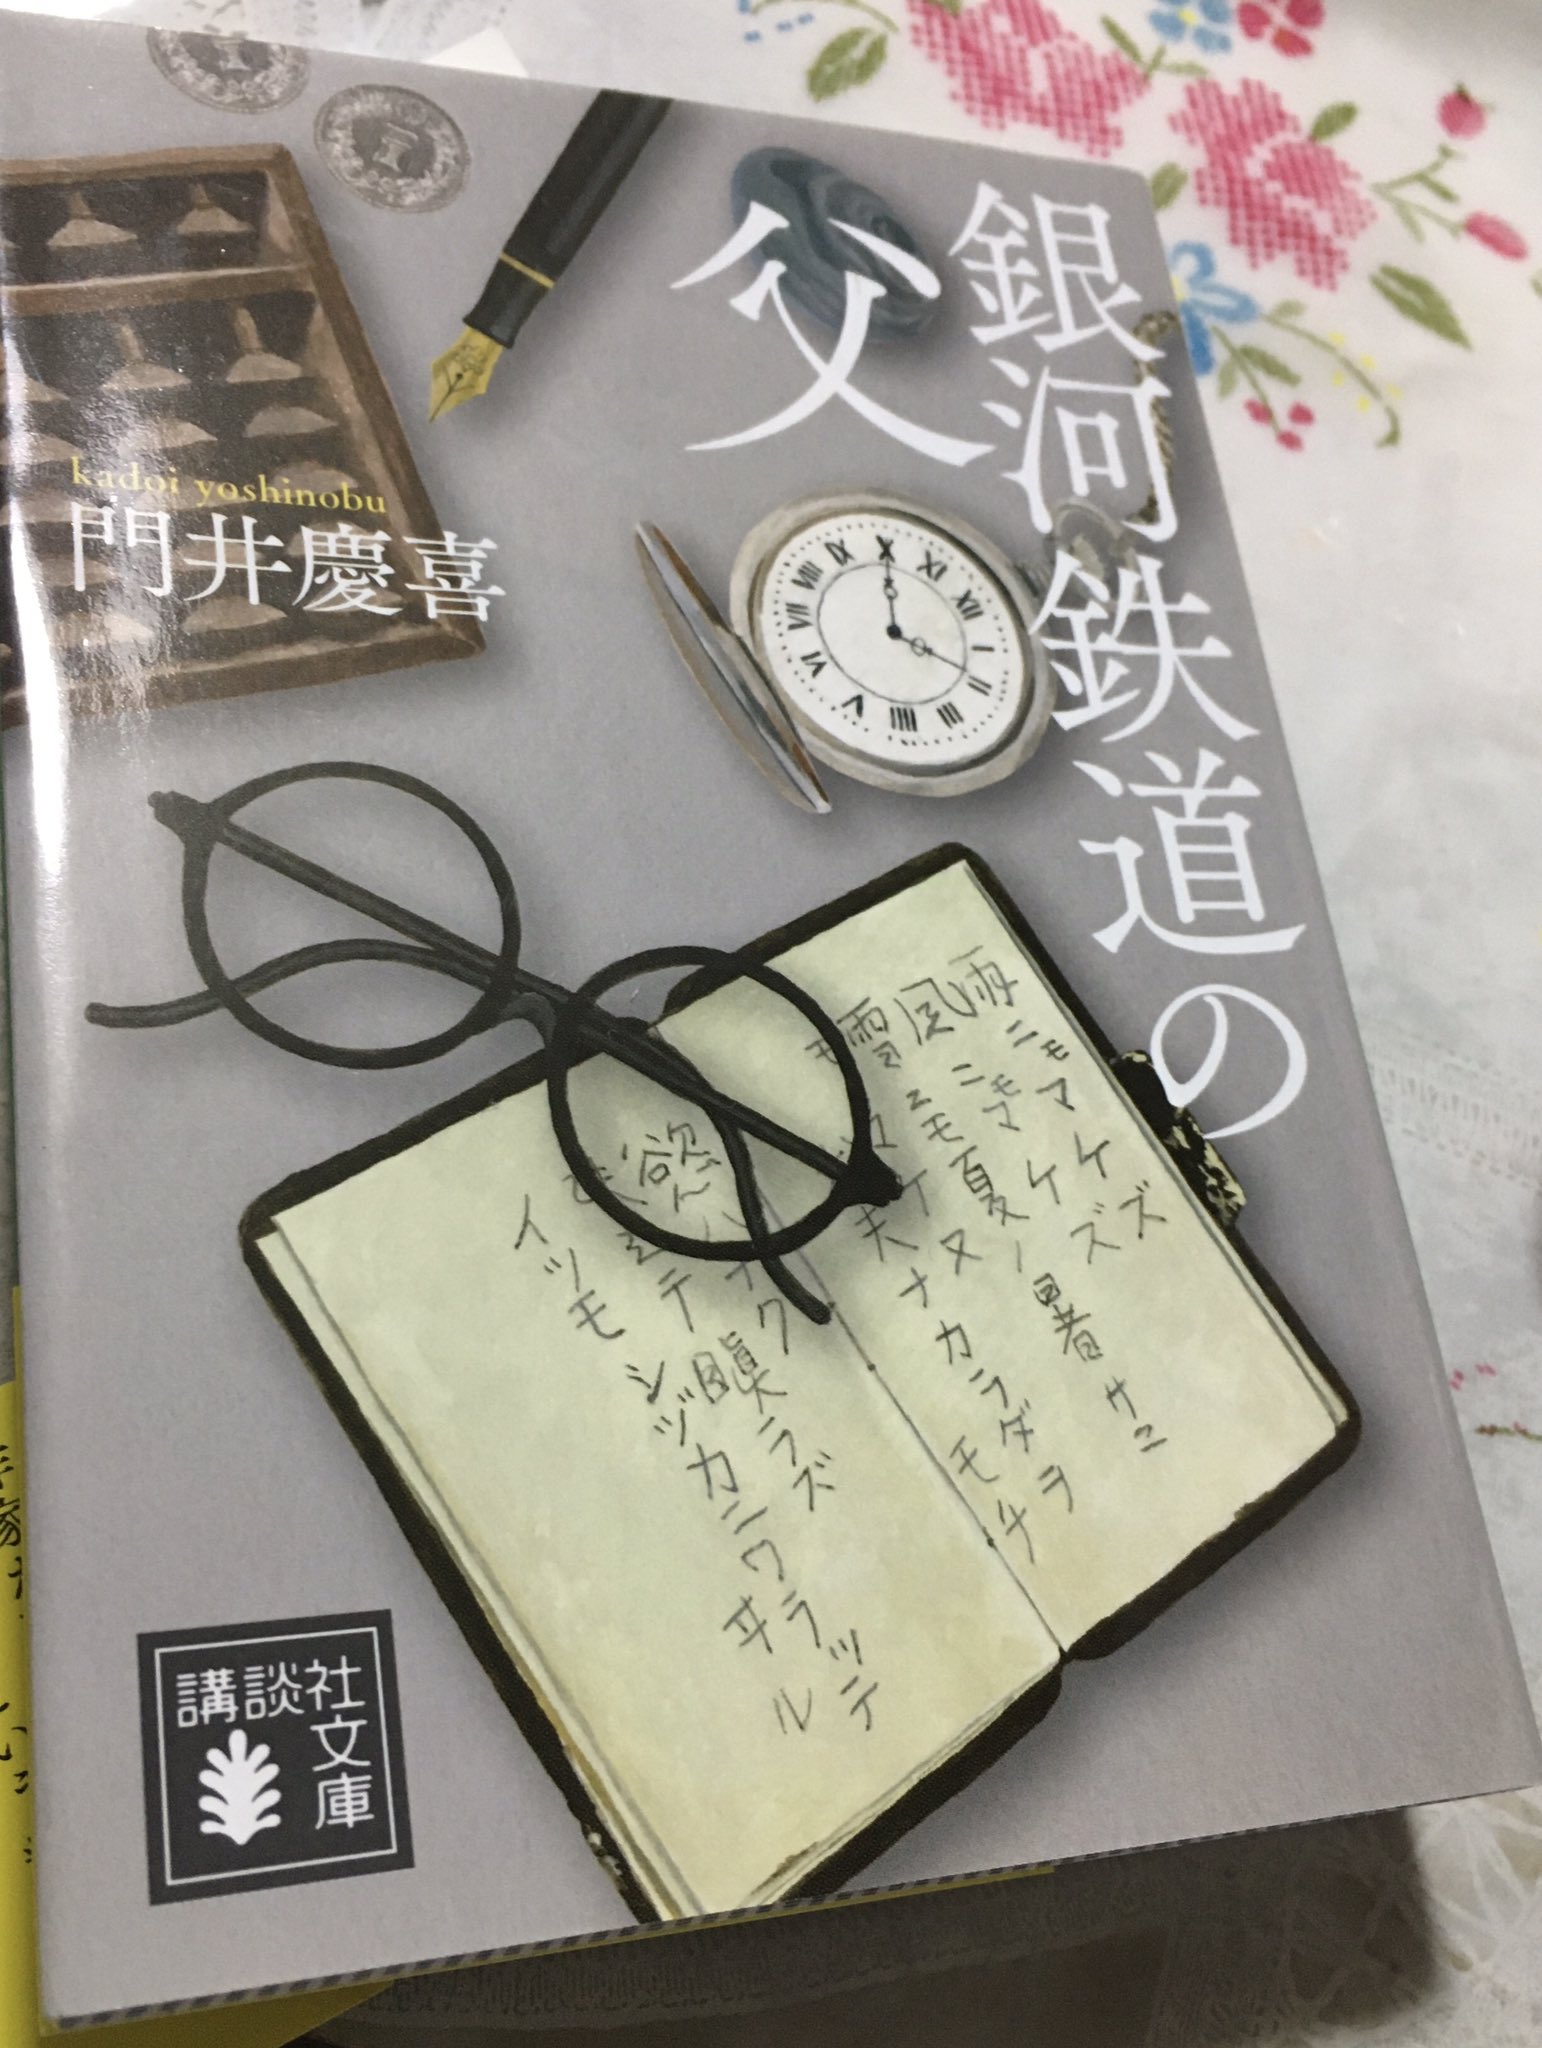 銀河鉄道の
父
kadoi yoshinobu
門井慶喜
雨ニモマケズ
風ニモマケズ
雪ニモ夏ノ暑サニ
モ
ケヌ
夫ナカラダヲ
モチ
慾ハナク
瞋ラズ
イツモシヅカニワラッテ
ヰル
講談社
文庫